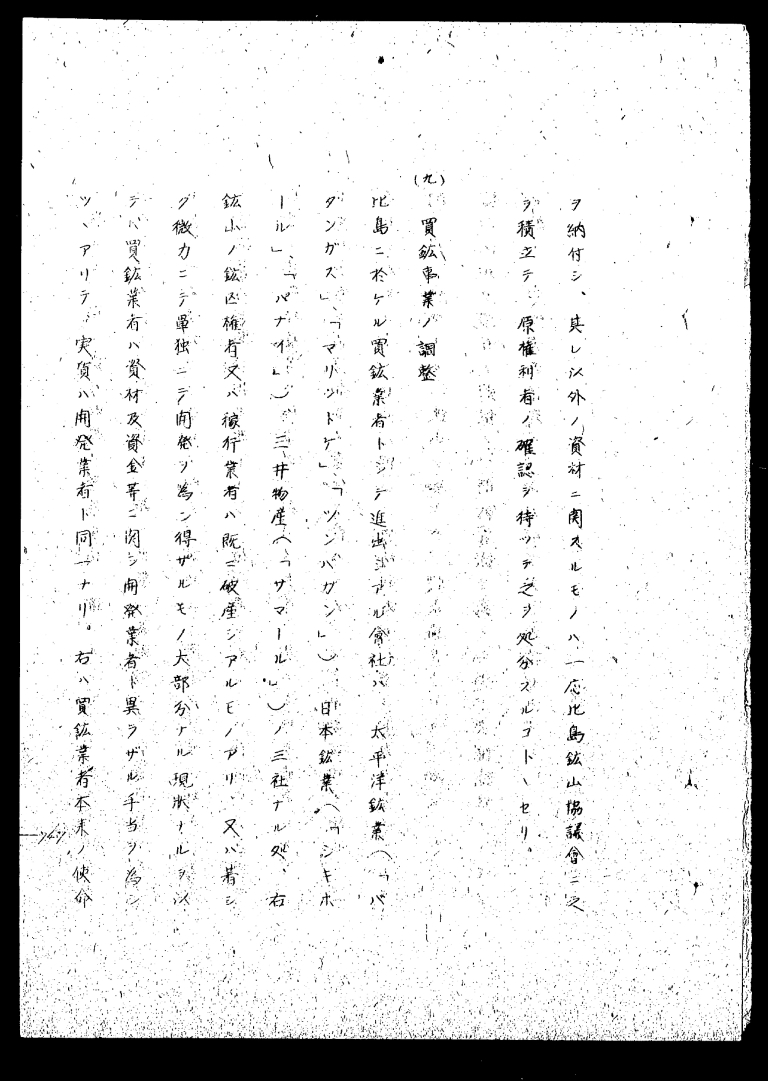 ヲ納付シ、其レ以外ノ資材ニ関スルモノハ一応比島鉱山協議會ニ之
ヲ積立テ、原権利者ノ確認ヲ待ッテ之ヲ処分スルコトヽセリ。
(九) 買鉱事業ノ調整
比島ニ於ケル買鉱業者トシテ進出シアル會社ハ、太平洋鉱業(「バ
タンガス」、「マリンドケ」、「ツンバガン」)、日本鉱業(「シキホ
ール」、「パナイ」)、三井物産(「サマール」)ノ三社ナル処、右
鉱山ノ鉱区権者又ハ稼行業者ハ既ニ破産シアルモノアリ、又ハ著シ
ク微力ニテ単独ニテ開発ヲ為シ得ザルモノ大部分ナル現状ナルヲ以
テ、買鉱業者ハ資材及資金等ニ関シ開発業者ト異ラザル手当ヲ為シ
ツヽアリテ、実質ハ開発業者ト同一ナリ。右ハ買鉱業者本来ノ使命